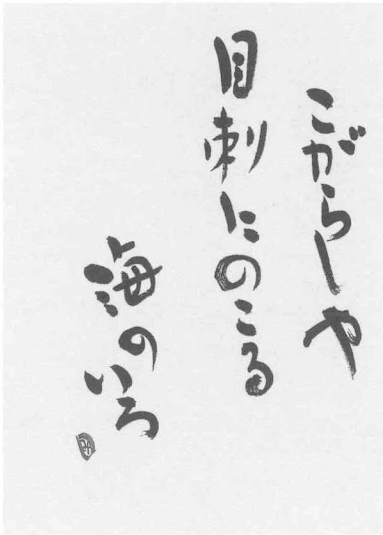 こがらしや
目刺にのこる
海のいろ